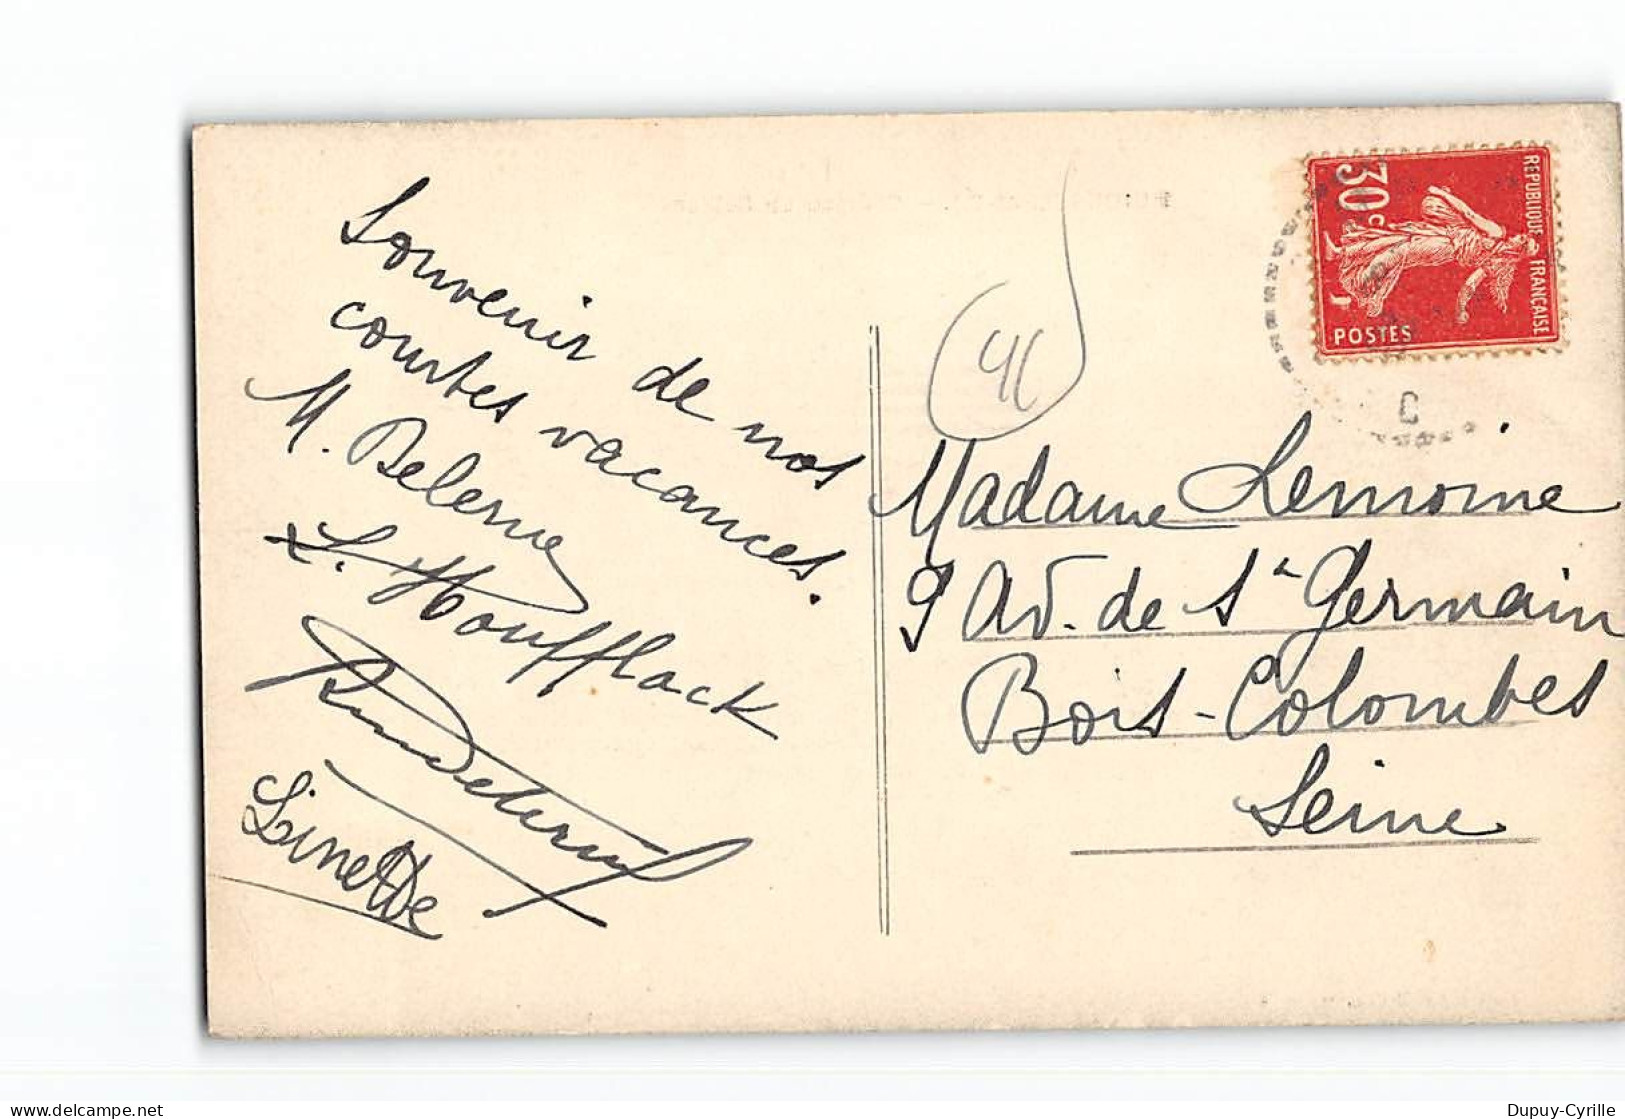 Souvenir de nos
courtes vacances.
M. Delerue
L. Houfflack
Linette
44
REPUBLIQUE FRANCAISE
30c
POSTES
C
Madame Lemoine
9 Av. de St Germain
Bois-Colombes
Seine
Dupuy-Cyrille